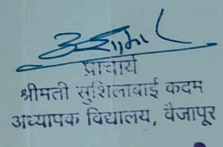 प्राचार्य
श्रीमती सुशिलाबाई कदम
अध्यापक विद्यालय, वैजापूर